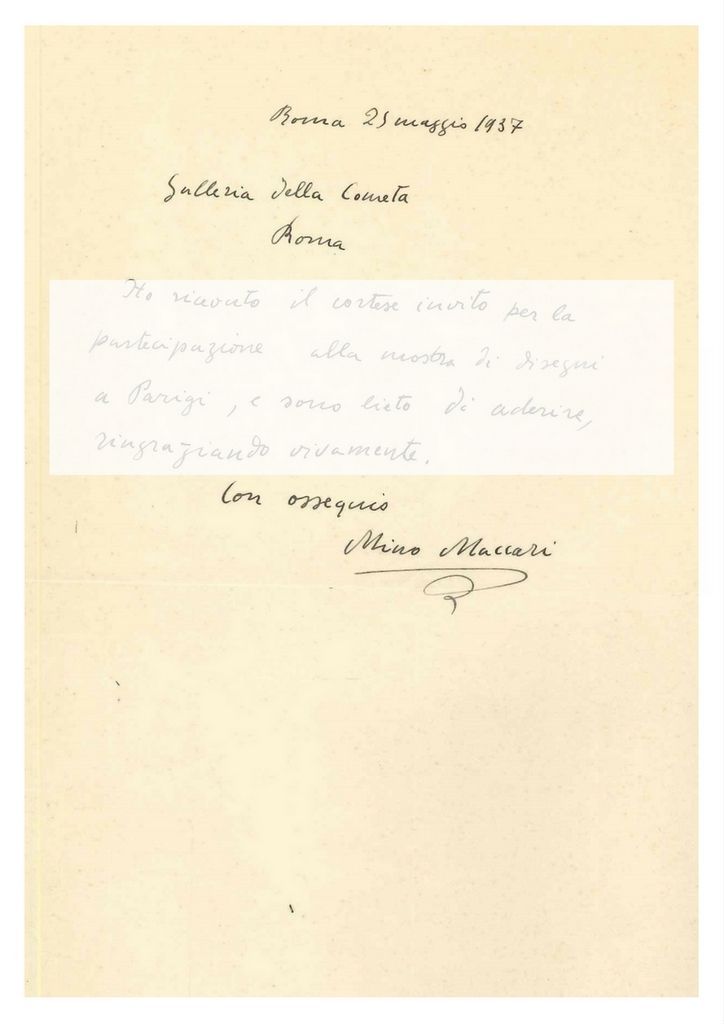 Roma 25 maggio 1937
Galleria della Cometa
Roma
Ho ricevuto il cortese invito per la
partecipazione alla mostra di disegni
a Parigi, e sono lieto di aderire,
ringraziando vivamente.
Con ossequio
Mino Maccari